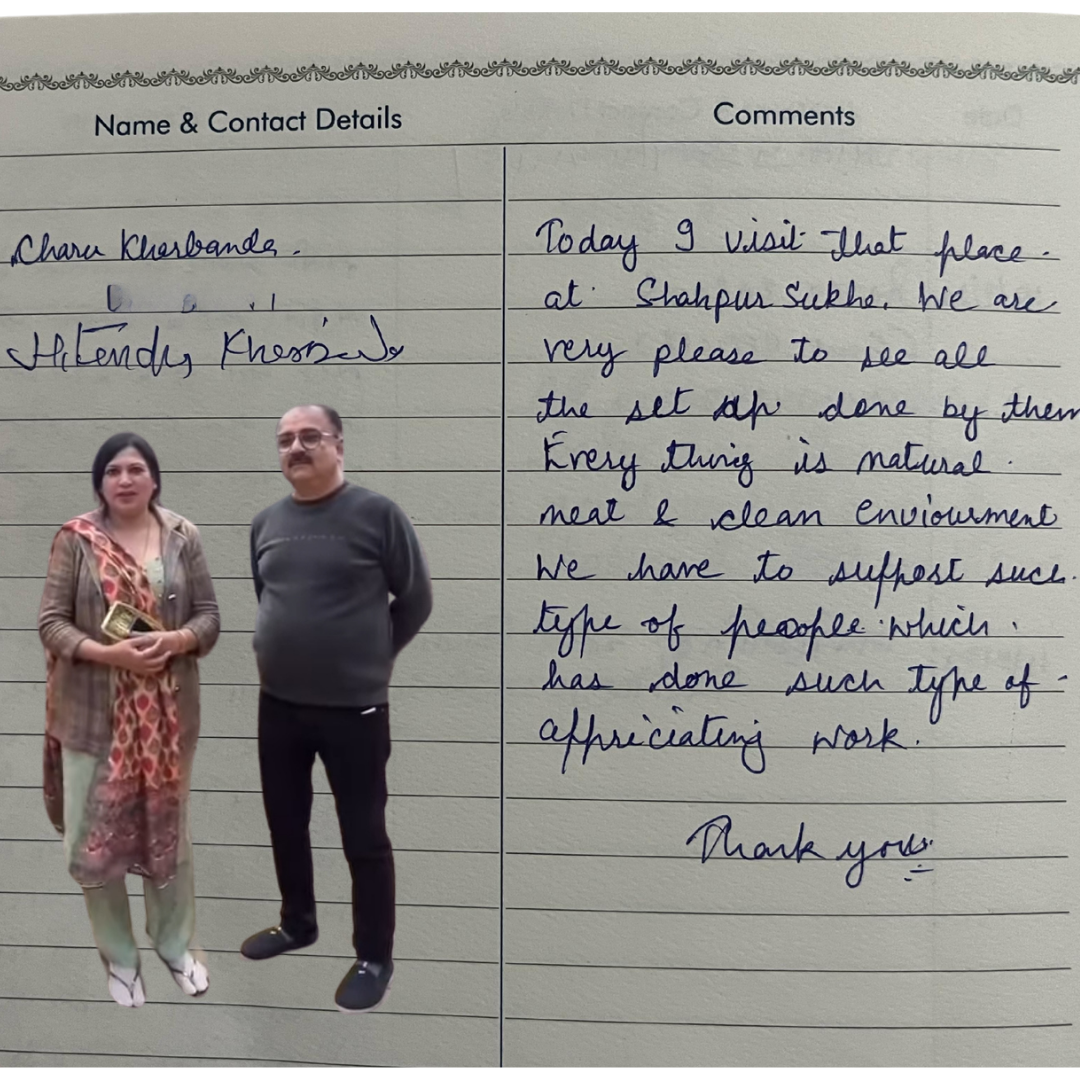 Name & Contact Details
Comments
Charu Kharbanda.
Hitendra
Today I visit that place.
at Shahpur Sukha. We are
very please to see all
the set up done by them
Every thing is natural.
neat & clean enviourment
We have to suppost such.
type of people which.
has done such type of -
appriciating work.
Thank you.